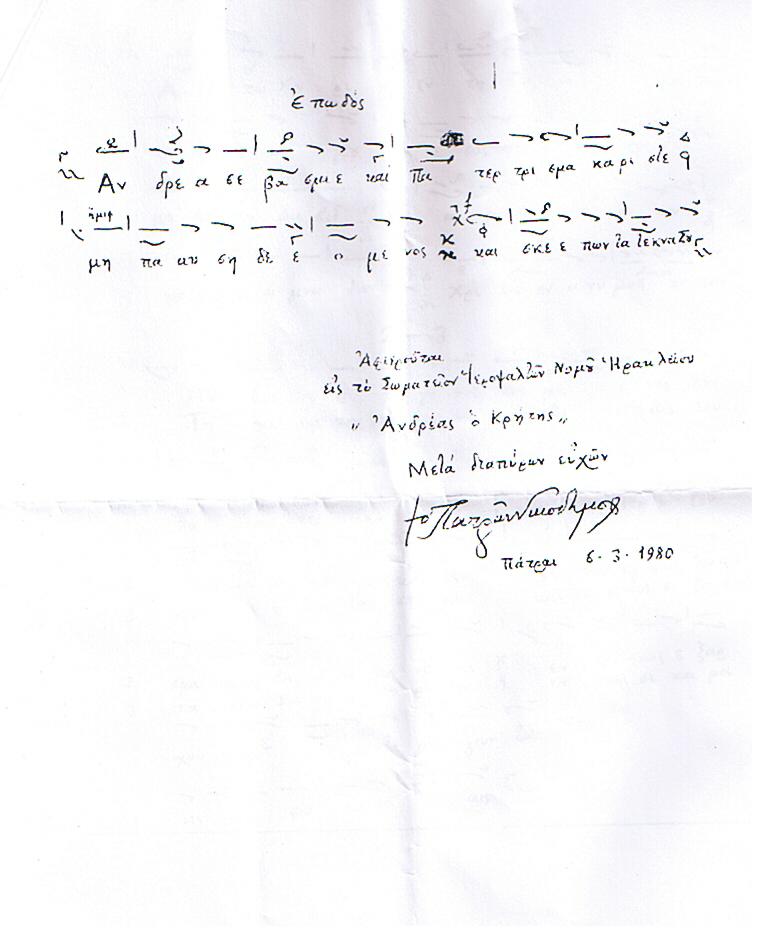 Ἐπωδός
Αν δρε α σε βα σμι ε και Πα τερ τρι σμα κα ρι στε
ημιφ
μη πα αυ ση δε ε ο με νος και σκε ε πων τα τεκνα σου
Ἀφιεροῦται
εἰς τό Σωματεῖον Ἱεροψαλτῶν Νομοῦ Ἡρακλείου
„ Ἀνδρέας ὁ Κρήτης „
Μετά διαπύρων εὐχῶν
† ὁ Πατρῶν Νικόδημος
Πάτραι 6·3·1980